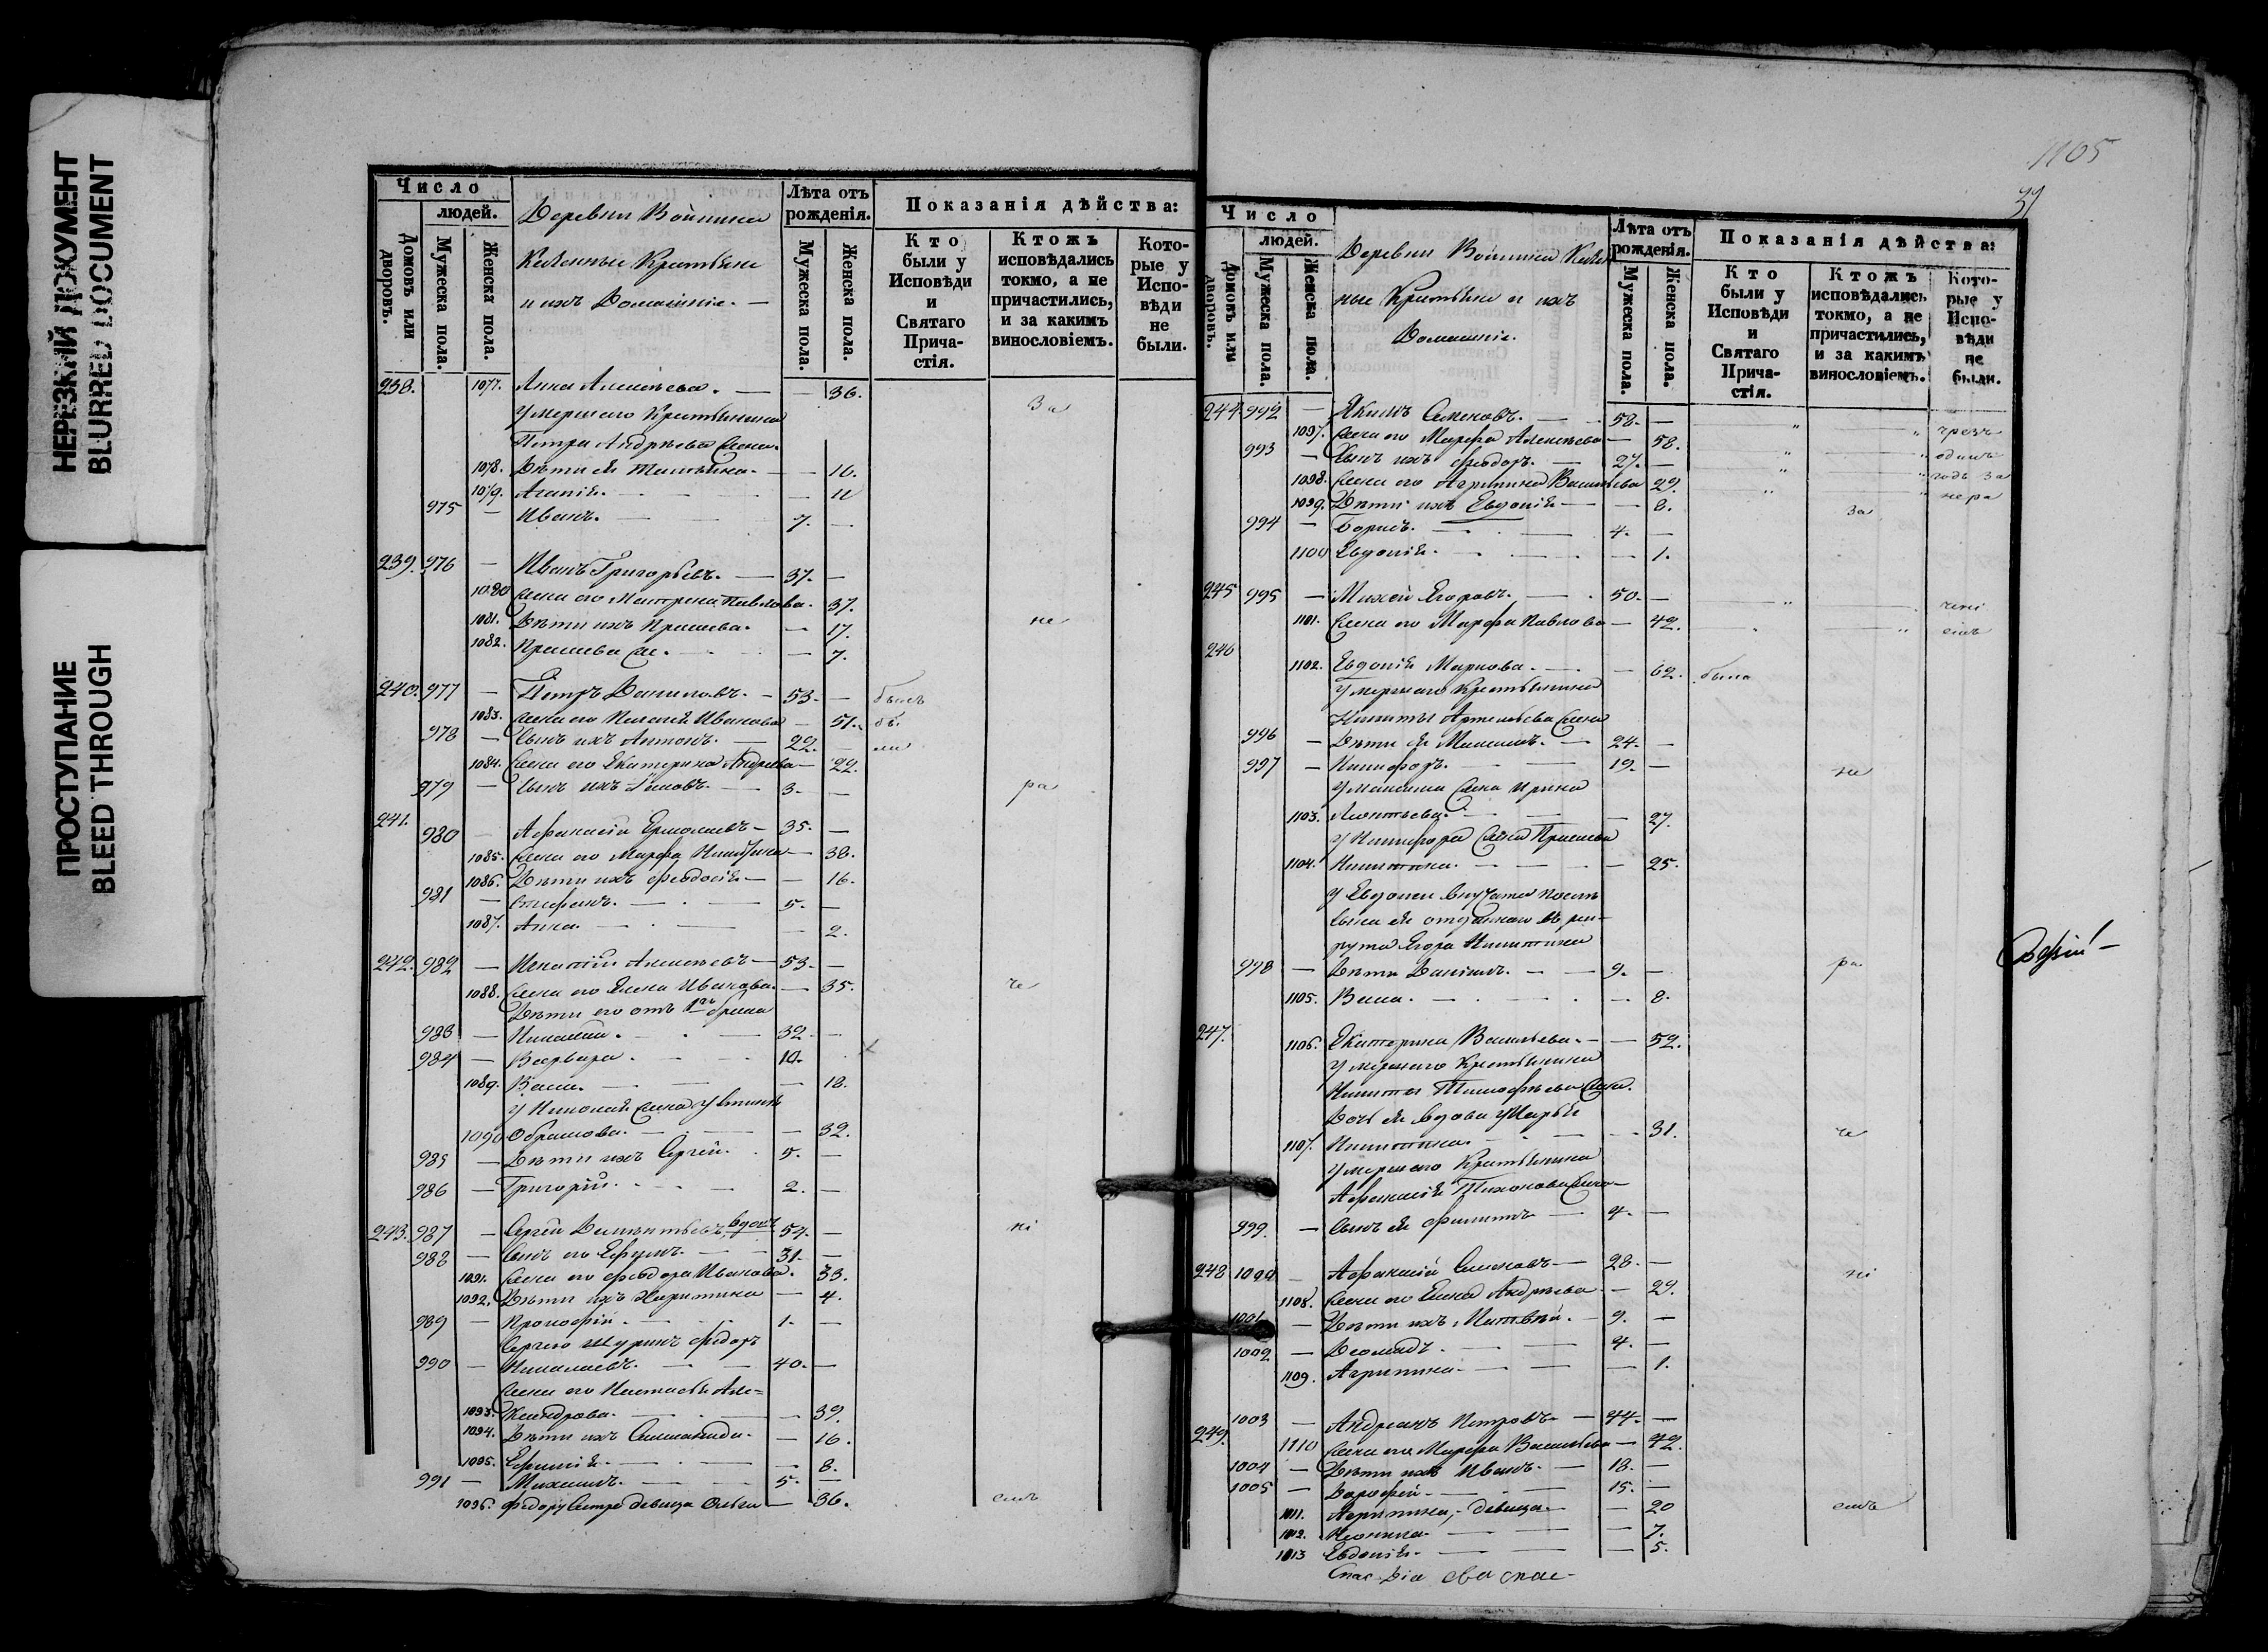 НЕРЕЗКИЙ ДОКУМЕНТ
BLURRED DOCUMENT
ПРОСТУПАНИЕ
BLEED THROUGH
Число
людей.
Домовъ или дворовъ.
Мужеска пола.
Женска пола.
Деревни
Крестьяне
и ихъ Домашніе. —
Лѣта отъ рожденія.
Мужеска пола.
Женска пола.
Показанія дѣйства:
Кто были у Исповѣди и Святаго Прича-стія.
Ктожъ исповѣдались токмо, а не причастились, и за какимъ винословіемъ.
Кото-рые у Испо-вѣди не были.
238. 1077. Анна Алексѣева. — — 36.
За
умершаго Крестьянина
Петра Андреева жена.
1078. Дѣти ея Татьяна. — — 16.
1079. Агапія. — — 11
975 — Иванъ. — 7. —
239. 976 — Иванъ Григорьевъ. — 37. —
1080 жена его Матрена Павлова. 37.
1081. Дѣти ихъ — 17.
не
1082. — 7.
240. 977 — Петръ Даниловъ. — 53. — былъ
1083. жена его Пелагея Иванова — 51. бы
978 — Сынъ ихъ Антонъ. — 22. — ли
1084. жена его Екатерина Андреева — 22.
979 — Сынъ ихъ — 3. —
ра
241. 980 — Афанасій Ермолаевъ — 35. —
1085. жена его Марфа — 38.
1086. Дѣти ихъ Феодосія — — 16.
981 — Стефанъ. — 5. —
1087. Анна. — — 2.
242. 982 — Игнатій Алексѣевъ — 53. —
1088. жена его Елена Иванова. — 35.
че
Дѣти его отъ 1го брака
983 — Николай. — 32. —
984 — Варвара. — 10.
1089. — 18.
у Николая жена Устинья
1090 Обрамова. — — 32.
985 — Дѣти ихъ Сергѣй. 5. —
986 — Григорій. — 2. —
243. 987 — Сергѣй вдовъ 54. —
ні
988 — Сынъ его Ефимъ. — 31. —
1091. жена его Феодора Иванова. 33.
1092. Дѣти ихъ Харитина — 4.
989 — Прокофій. — 1. —
Сергею шуринъ Федоръ
990 — Николаевъ. — 40. —
жена его Настасья Але=
1093. ксандрова. — — 39.
1094. Дѣти ихъ — 16.
1095. Ефимія. — — 8.
991 — Михаилъ. — 5. —
1096. Федору сестра девица Ольга — 36.
емъ
1105
39
Число
людей.
Домовъ или дворовъ.
Мужеска пола.
Женска пола.
Деревни
ные Крестьяне и ихъ
Домашніе.
Лѣта отъ рожденія.
Мужеска пола.
Женска пола.
Показанія дѣйства:
Кто были у Исповѣди и Святаго Прича-стія.
Ктожъ исповѣдались токмо, а не причастились, и за какимъ винословіемъ.
Кото-рые у Испо-вѣди не были.
244. 992 — Якимъ Семеновъ. — 58. — чрезъ
1097. жена его Марфа Алексѣева — 58.
993 — Сынъ ихъ Феодоръ. — 27. — одинъ
1098. жена его Агрипина Васильева 29. годъ за
1099. Дѣти ихъ Евдокія — — 8. нера
за
994 — Борисъ. — 4. —
1100 Евдокія. — — 1.
245 995 — Михей Егоровъ. — 50. — чені
1101. жена его Марфа Павлова — 42. емъ
246
1102. Евдокія Маркова. — — 62. была
умершаго Крестьянина
Никиты Артемьева жена
996 — Дѣти ея Максимъ. — 24. —
997 — Никифоръ. — 19. —
не
у Максима жена Ирина
1103. Леонтьева. — — 27.
у Никифора жена
1104. Никитина. — — 25.
у Евдокеи внучата после
сына ея отданнаго въ рек-
рута Егора Никитина
998 — Дѣти Данiилъ. — 9. —
ра
1105. — 8.
247. 1106. Екатерина Васильева. — — 52.
умершаго Крестьянина
Никиты Тимофѣева жена.
Дочь ея вдова Марья
1107. Никитина. — — 31.
че
умершаго Крестьянина
Афанасія Тихонова жена —
999. — Сынъ ея Филиппъ — 4. —
248 1000 — Афанасій Семеновъ — 28. —
ні
1108. жена его Елена Андреева — 29.
1001 — Дѣти ихъ Матвѣй. — 9. —
1002 — — 4. —
1109. Агрипина — — 1.
249. 1003 — Андреянъ Петровъ. — 44. —
1110 жена его Марфа Васильева — 42.
1004 — Дѣти ихъ Иванъ. — 18. —
1005 — Дорофей. — 15. —
1111. Агрипина, — девица — — 20
емъ
1012. — 7.
1013 Евдокія. — — 5.